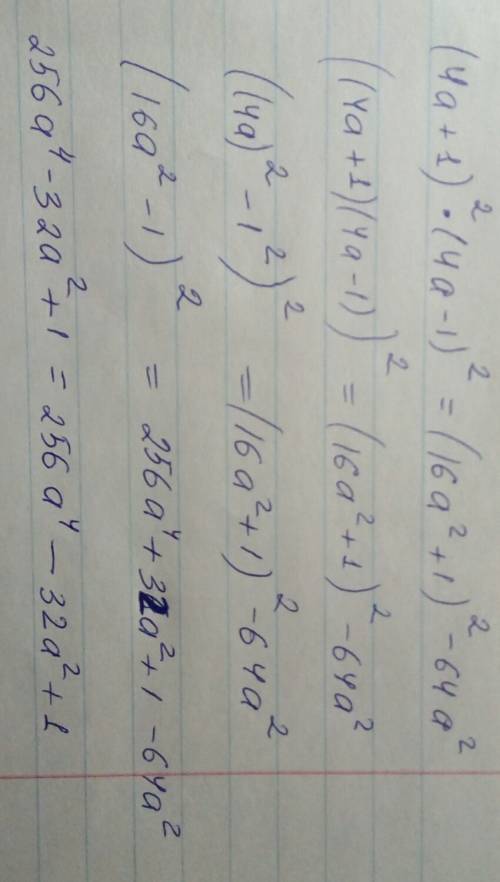 (4a+1)² · (4a-1)² = (16a²+1)² - 64a²
((4a+1)(4a-1))² = (16a²+1)² - 64a²
((4a)² - 1²)² = (16a²+1)² - 64a²
(16a² - 1)² = 256a⁴ + 32a² + 1 - 64a²
256a⁴ - 32a² + 1 = 256a⁴ - 32a² + 1